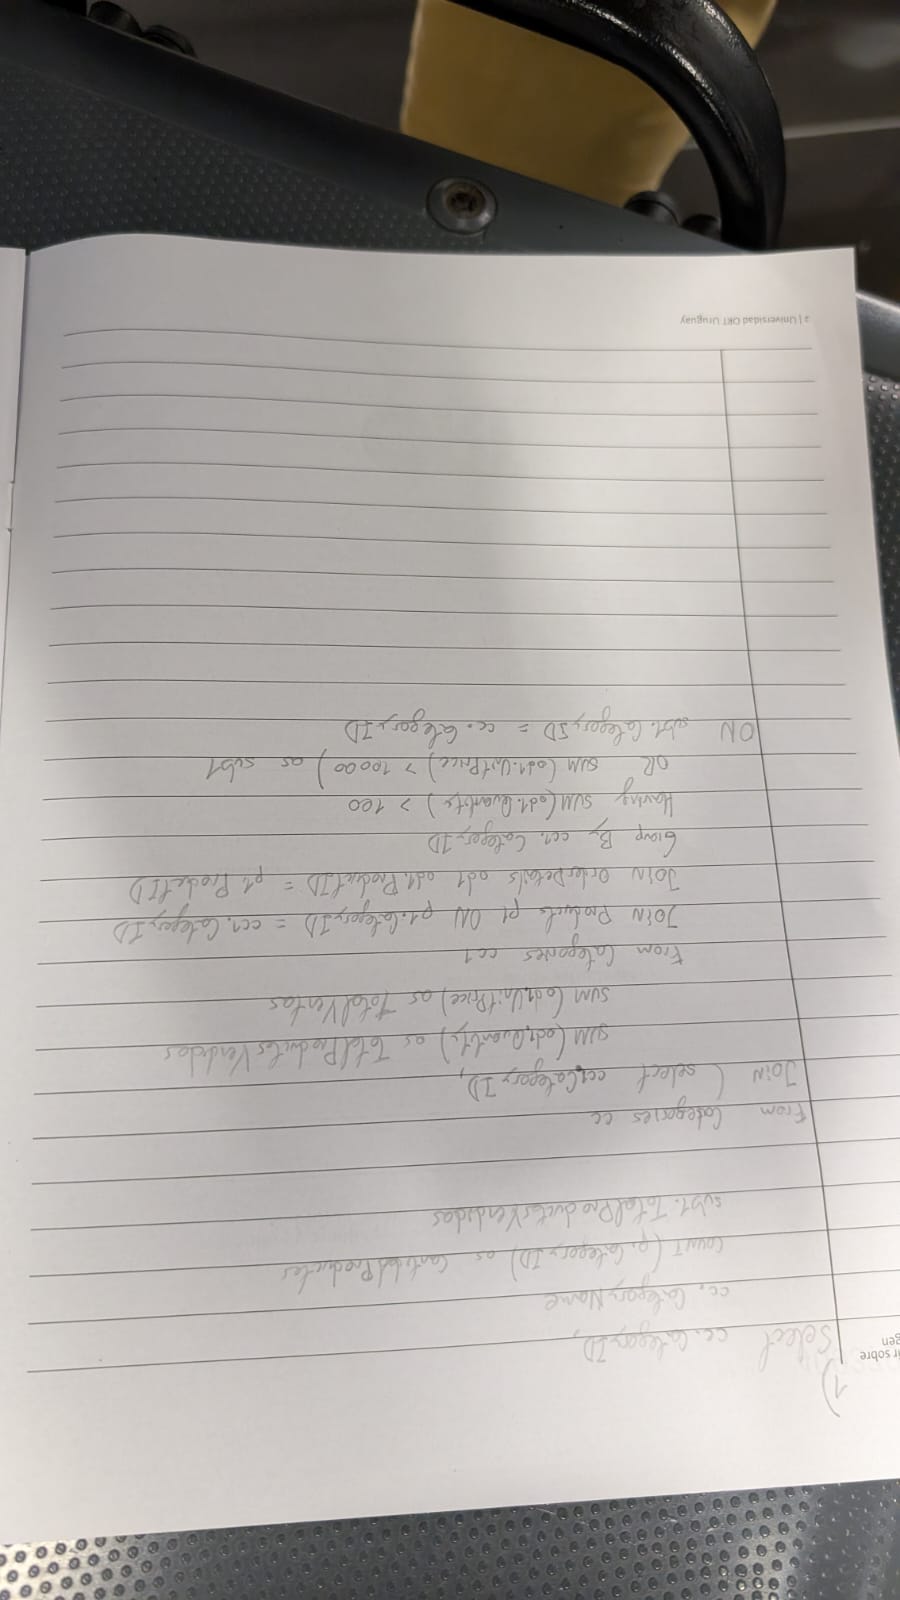 1)
ir sobre
gen
Select cc.CategoryID,
cc.CategoryName
COUNT (p.CategoryID) as CantidadProductos
sub1.TotalProductosVendidos
From Categories cc
JOIN ( select cc1.CategoryID,
SUM (od1.Quantity) as TotalProductosVendidos
SUM (od1.UnitPrice) as TotalVentas
From Categories cc1
JOIN Products p1 ON p1.CategoryID = cc1.CategoryID
JOIN OrderDetails od1 od1.ProductID = p1.ProductID
Group By cc1.CategoryID
Having SUM(od1.Quantity) > 100
OR SUM (od1.UnitPrice) > 10000) as sub1
ON sub1.CategoryID = cc.CategoryID
2 | Universidad ORT Uruguay